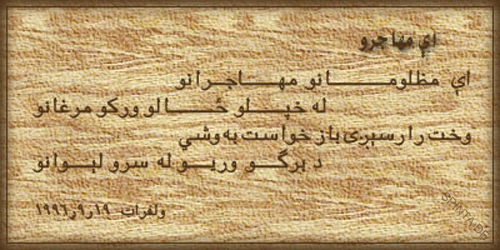 اې مهاجرو
اې مظلومـــــانو مهـــاجـــرانو
له خپـــلو ځـــالو ورکو مرغانو
وخت را رسېږی باز خواست به وشي
د برګـــو وریـــو له سرو لېـــوانو
ولفرات ۱۹ر۹ر۱۹۹٦